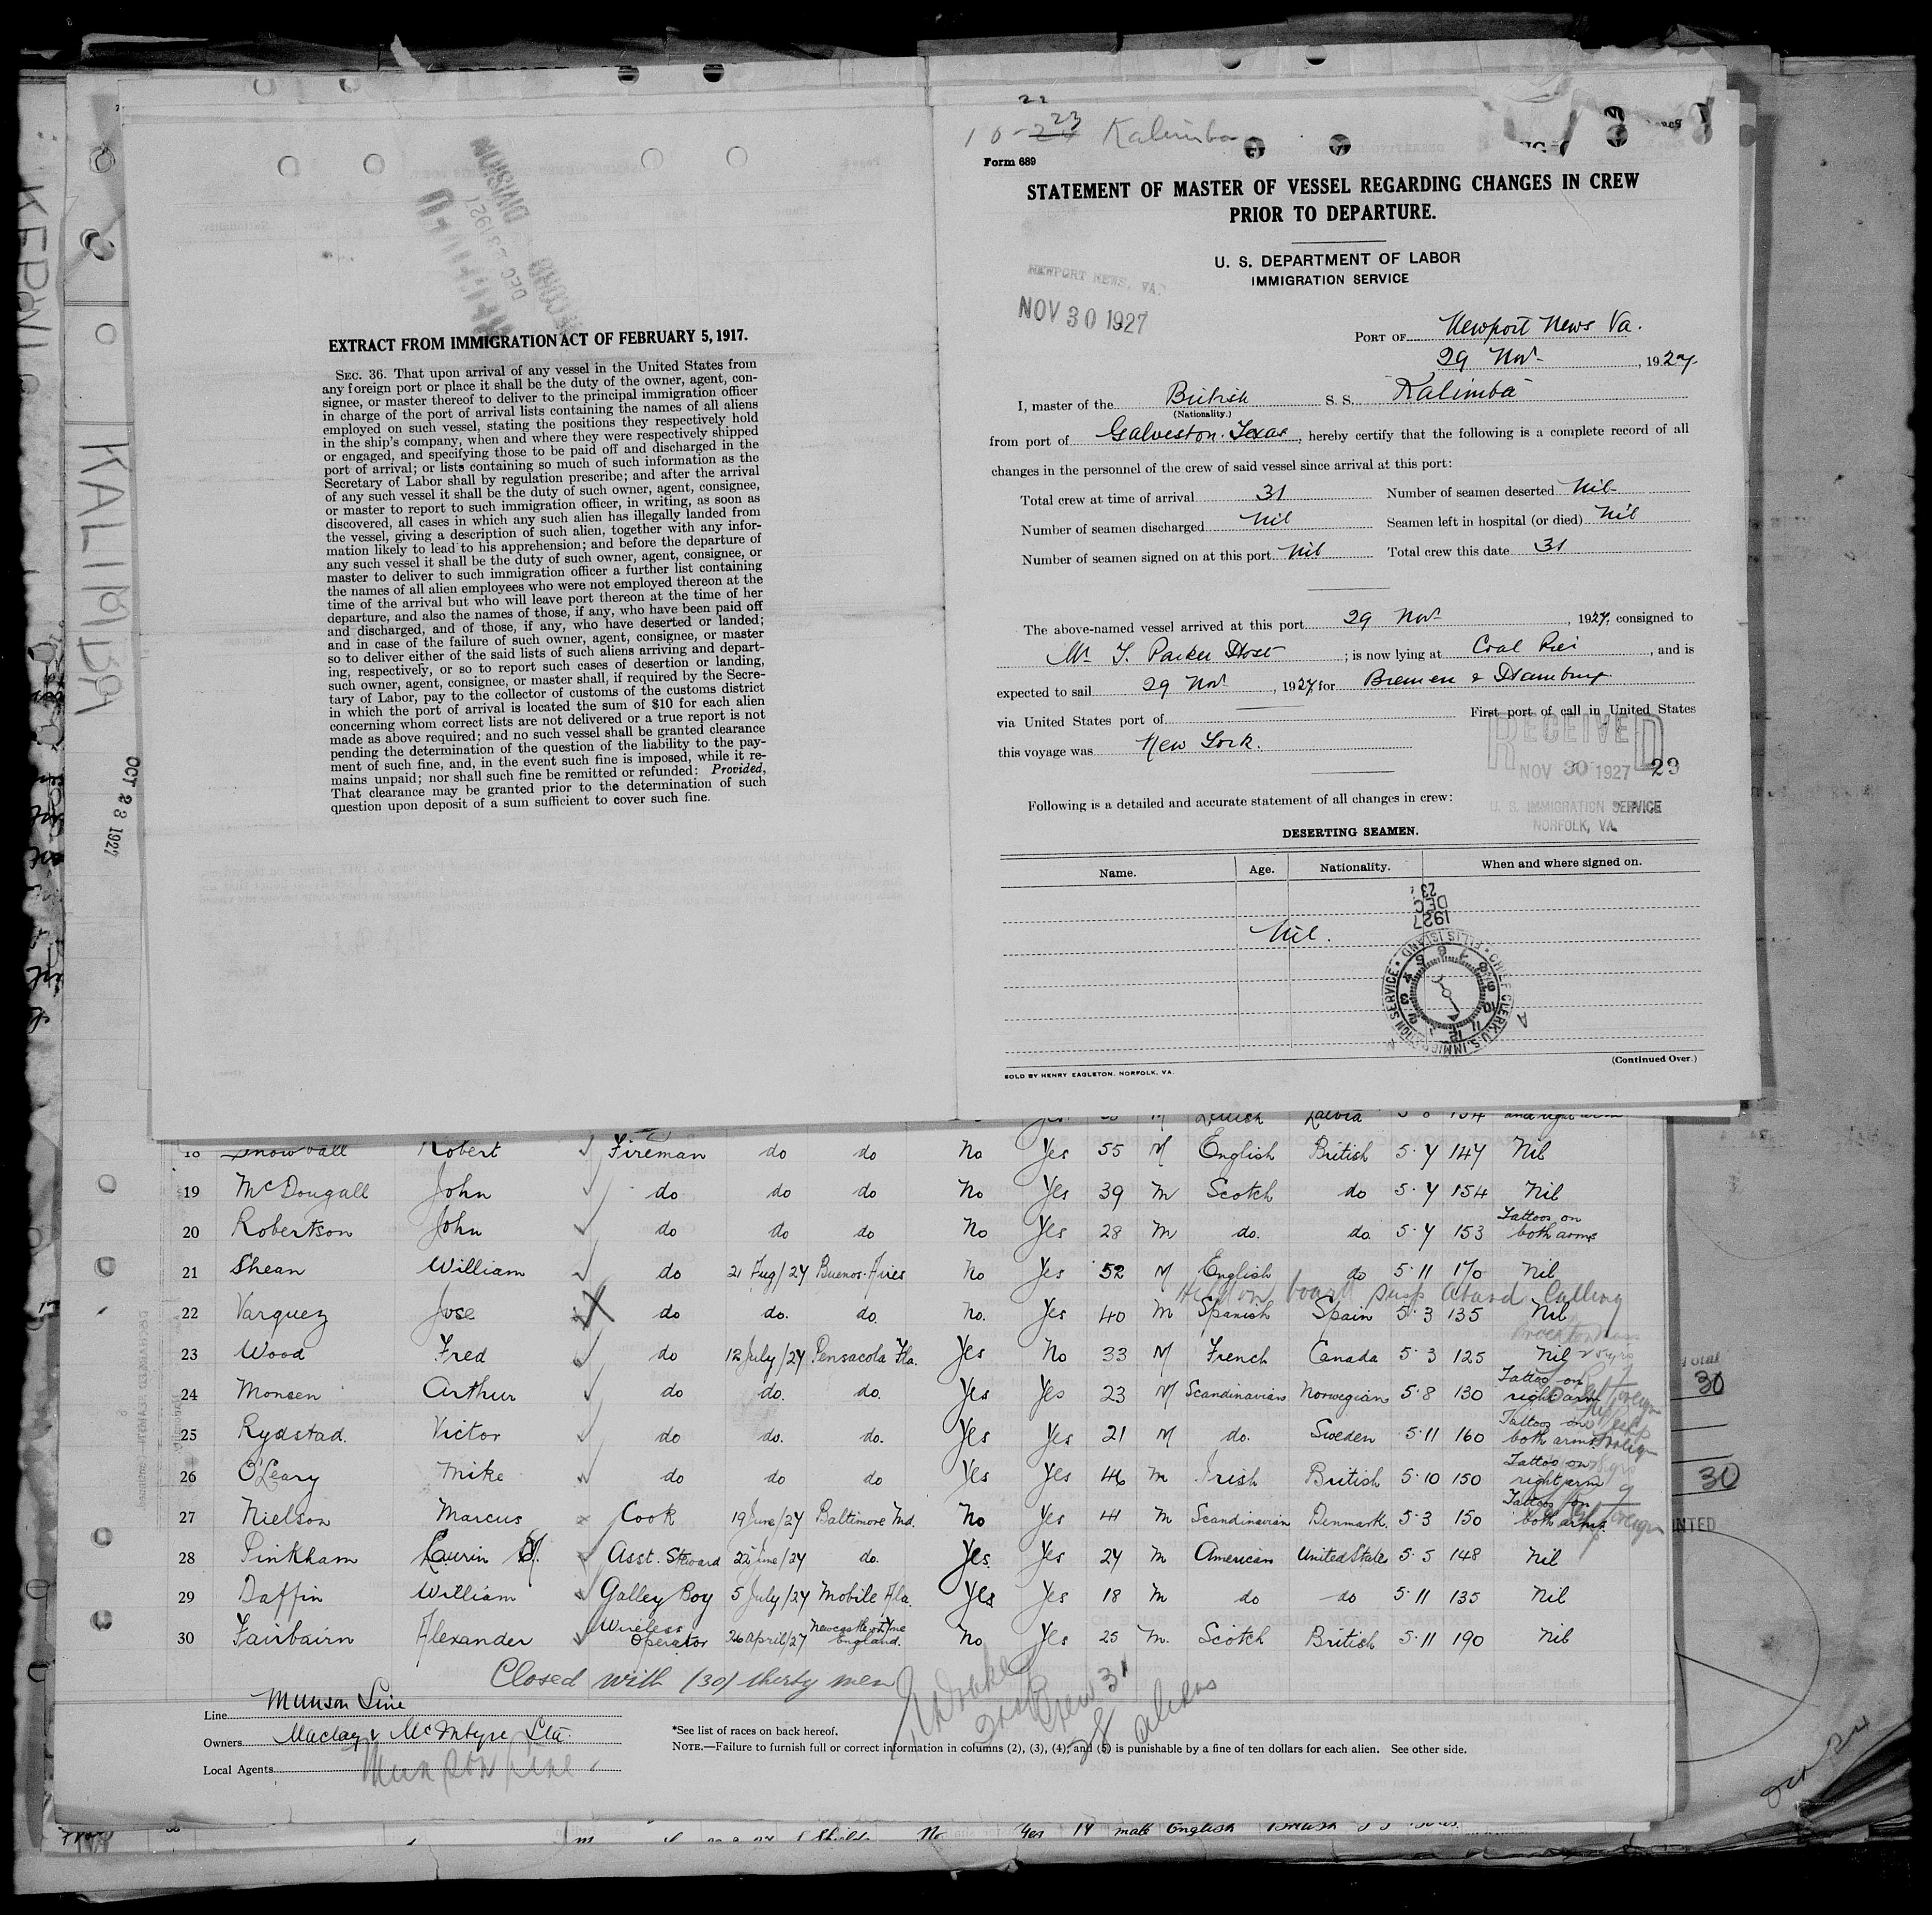 EXTRACT FROM IMMIGRATION ACT OF FEBRUARY 5, 1917.
SEC. 36. That upon arrival of any vessel in the United States from
any foreign port or place it shall be the duty of the owner, agent, con-
signee, or master thereof to deliver to the principal immigration officer
in charge of the port of arrival lists containing the names of all aliens
employed on such vessel, stating the positions they respectively hold
in the ship's company, when and where they were respectively shipped
or engaged, and specifying those to be paid off and discharged in the
port of arrival; or lists containing so much of such information as the
Secretary of Labor shall by regulation prescribe; and after the arrival
of any such vessel it shall be the duty of such owner, agent, consignee,
or master to report to such immigration officer, in writing, as soon as
discovered, all cases in which any such alien has illegally landed from
the vessel, giving a description of such alien, together with any infor-
mation likely to lead to his apprehension; and before the departure of
any such vessel it shall be the duty of such owner, agent, consignee, or
master to deliver to such immigration officer a further list containing
the names of all alien employees who were not employed thereon at the
time of the arrival but who will leave port thereon at the time of her
departure, and also the names of those, if any, who have been paid off
and discharged, and of those, if any, who have deserted or landed;
and in case of the failure of such owner, agent, consignee, or master
so to deliver either of the said lists of such aliens arriving and depart-
ing, respectively, or so to report such cases of desertion or landing,
such owner, agent, consignee, or master shall, if required by the Secre-
tary of Labor, pay to the collector of customs of the customs district
in which the port of arrival is located the sum of $10 for each alien
concerning whom correct lists are not delivered or a true report is not
made as above required; and no such vessel shall be granted clearance
pending the determination of the question of the liability to the pay-
ment of such fine, and, in the event such fine is imposed, while it re-
mains unpaid; nor shall such fine be remitted or refunded: Provided,
That clearance may be granted prior to the determination of such
question upon deposit of a sum sufficient to cover such fine.
KALIMBA
OCT 23 1927
Kalimba
Form 689
STATEMENT OF MASTER OF VESSEL REGARDING CHANGES IN CREW
PRIOR TO DEPARTURE.
U. S. DEPARTMENT OF LABOR
IMMIGRATION SERVICE
NEWPORT NEWS, VA.
NOV 30 1927
PORT OF Newport News Va.
29 Nov , 1927
I, master of the British S. S. Kalimba
(Nationality.)
from port of Galveston. Texas, hereby certify that the following is a complete record of all
changes in the personnel of the crew of said vessel since arrival at this port:
Total crew at time of arrival 31 Number of seamen deserted Nil
Number of seamen discharged Nil Seamen left in hospital (or died) Nil
Number of seamen signed on at this port Nil Total crew this date 31
The above-named vessel arrived at this port 29 Nov , 1927, consigned to
Mr T. Parker Host ; is now lying at Coal Pier , and is
expected to sail 29 Nov , 1927 for Bremen & Hamburg
via United States port of First port of call in United States
this voyage was New York.
RECEIVED
NOV 30 1927 29
U. S. IMMIGRATION SERVICE
NORFOLK, VA.
Following is a detailed and accurate statement of all changes in crew:
DESERTING SEAMEN.
Name. Age. Nationality. When and where signed on.
DEC 23
1927
Nil.
(Continued Over.)
SOLD BY HENRY EAGLETON, NORFOLK, VA.
18 Snowball Robert Fireman do do No Yes 55 M English British 5·7 147 Nil
19 McDougall John do do do No Yes 39 M Scotch do 5·7 154 Nil
20 Robertson John do do do No Yes 28 M do. do 5·7 153 Tattoos on both arms
21 Shean William do 21 Aug/27 Buenos Aires No Yes 52 M English do 5·11 170 Nil
22 Varquez Jose do do. do. No. Yes 40 M Spanish Spain 5·3 135 Nil
23 Wood Fred do 12 July/27 Pensacola Fla. Yes No 33 M French Canada 5·3 125 Nil
24 Monsen Arthur do do. do. Yes Yes 23 M Scandinavian Norwegian 5·8 130 Tattoo on right arm
25 Rydstad. Victor do do. do. Yes Yes 21 M do. Sweden 5·11 160 Tattoos on both arms
26 O'Leary Mike do do do Yes Yes 46 M Irish British 5·10 150 Tattoo on right arm
27 Nielson Marcus Cook 19 June/27 Baltimore Md. No Yes 41 M Scandinavian Denmark. 5·3 150 Tattoos on both arms
28 Pinkham Laurin Asst. Steward 22 June/27 do. Yes Yes 27 M American United States 5·5 148 Nil
29 Daffin William Galley Boy 5 July/27 Mobile Ala. Yes Yes 18 M do do 5·11 135 Nil
30 Fairbairn Alexander Wireless Operator 26 April/27 Newcastle on Tyne England. No Yes 25 M. Scotch British 5·11 190 Nil
Closed with (30) thirty men
Crew 31
28 aliens
Line Munson Line
Owners Maclay & McIntyre Ltd.
Local Agents Munson Line
*See list of races on back hereof.
NOTE.—Failure to furnish full or correct information in columns (2), (3), (4), and (5) is punishable by a fine of ten dollars for each alien. See other side.
Total
30
30